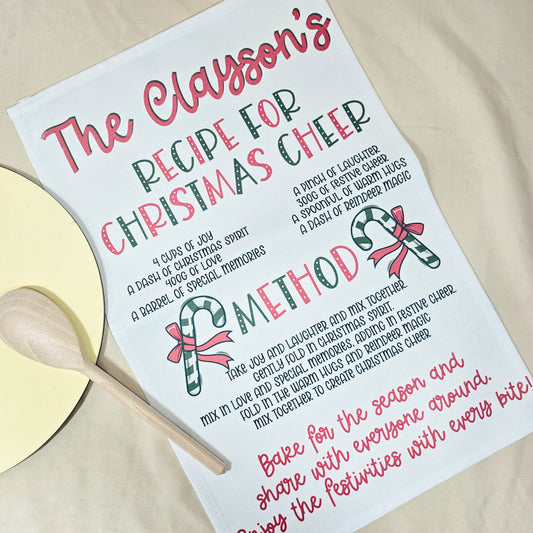 The Clayson's
RECIPE FOR
CHRISTMAS CHEER
4 CUPS OF JOY
A DASH OF CHRISTMAS SPIRIT
400G OF LOVE
A BARREL OF SPECIAL MEMORIES
A PINCH OF LAUGHTER
300G OF FESTIVE CHEER
A SPOONFUL OF WARM HUGS
A DASH OF REINDEER MAGIC
METHOD
TAKE JOY AND LAUGHTER AND MIX TOGETHER
GENTLY FOLD IN CHRISTMAS SPIRIT
MIX IN LOVE AND SPECIAL MEMORIES, ADDING IN FESTIVE CHEER
FOLD IN THE WARM HUGS AND REINDEER MAGIC
MIX TOGETHER TO CREATE CHRISTMAS CHEER
Bake for the season and
share with everyone around.
Enjoy the festivities with every bite!